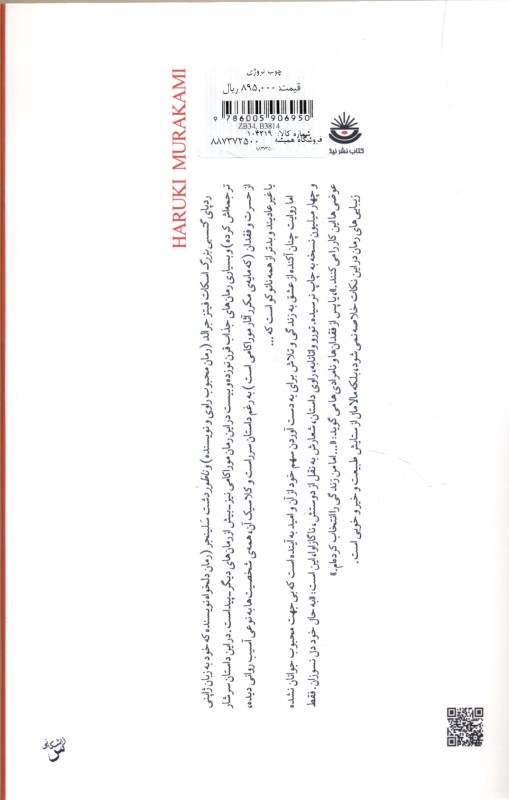 HARUKI MURAKAMI
چوب نروژی
قیمت: ۸۹۵,۰۰۰ ریال
9 786005 906950
ZB34, B3814
شماره کالا: ۱۰۴۳۱۹
فروشگاه همیشه ۸۸۷۳۷۲۵۰۰
کتاب نشر نیکا
ردپای گتسبی بزرگ اسکات فیتز جرالد (رمان محبوب راوی و نویسنده) و ناطور دشت سَلینجر (رمان دلخواه نویسنده که خود به زبان ژاپنی
ترجمه‌اش کرده) و بسیاری رمان‌های جذاب قرن نوزده و بیست در این رمان موراکامی نیز ـ بیش از رمان‌های دیگر ـ پیداست. در این داستان سرشار
از حسرت و فقدان (که مایه‌ی مکرر آثار موراکامی است) به رغم داستان سرراست و کلاسیک آن، همه‌ی شخصیت‌ها به نوعی آسیب روانی دیده،
یا غیرعادیند و بدتر از همه نائوکو است که ...
اما روایت چنان آکنده از عشق به زندگی و تلاش برای به دست آوردن سهم خود از آن و امید به آینده است که بی‌جهت محبوب جوانان نشده
و چهار میلیون نسخه به چاپ نرسیده. تورو واتانابه، راوی داستان، شعارش به نقل از دوستش، ناگازاوا، این است: «به حال خود دل نسوزان. فقط
عوضی‌ها این کار را می‌کنند.»، یا پس از فقدان‌ها و نامرادی‌ها می‌گوید: «... اما من زندگی را انتخاب کرده‌ام.»
زیبایی‌های رمان در این نکات خلاصه نمی‌شود، بلکه مالامال از ستایش طبیعت و خیر و خوبی است.